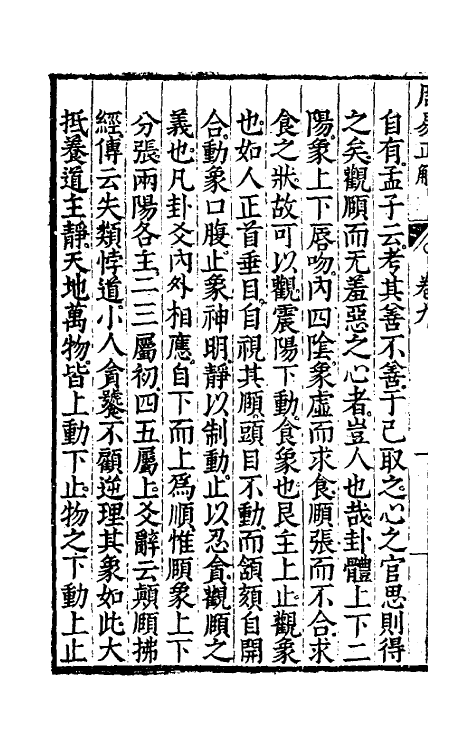 周易正解 卷九
自有孟子云考其善不善于己取之心之官思則得
之矣觀頤而无羞惡之心者豈人也哉卦體上下二
陽象上下唇吻內四陰象虛而求食頤張而不合求
食之狀故可以觀震陽下動食象也艮主上止觀象
也如人正首垂目自視其頤頭目不動而頷頦自開
合動象口腹止象神明靜以制動止以忍貪觀頤之
義也凡卦爻內外相應自下而上爲順惟頤象上下
分張兩陽各主二三屬初四五屬上爻辭云顛頤拂
經傳云失類悖道小人貪饕不顧逆理其象如此大
抵養道主靜天地萬物皆上動下止物之下動上止